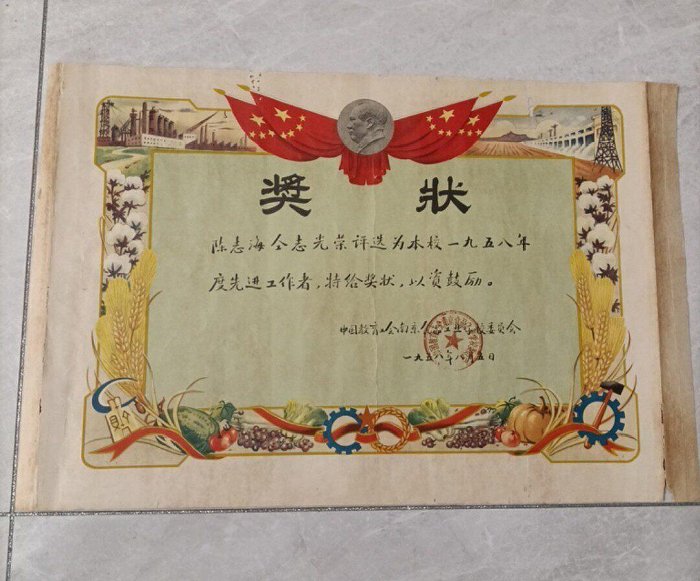 奖 状
陈志海仝志光荣评选为本校一九五八年
度先进工作者，特给奖状，以资鼓励。
中国教育工会南京 工业学校委员会
一九五八年八月五日